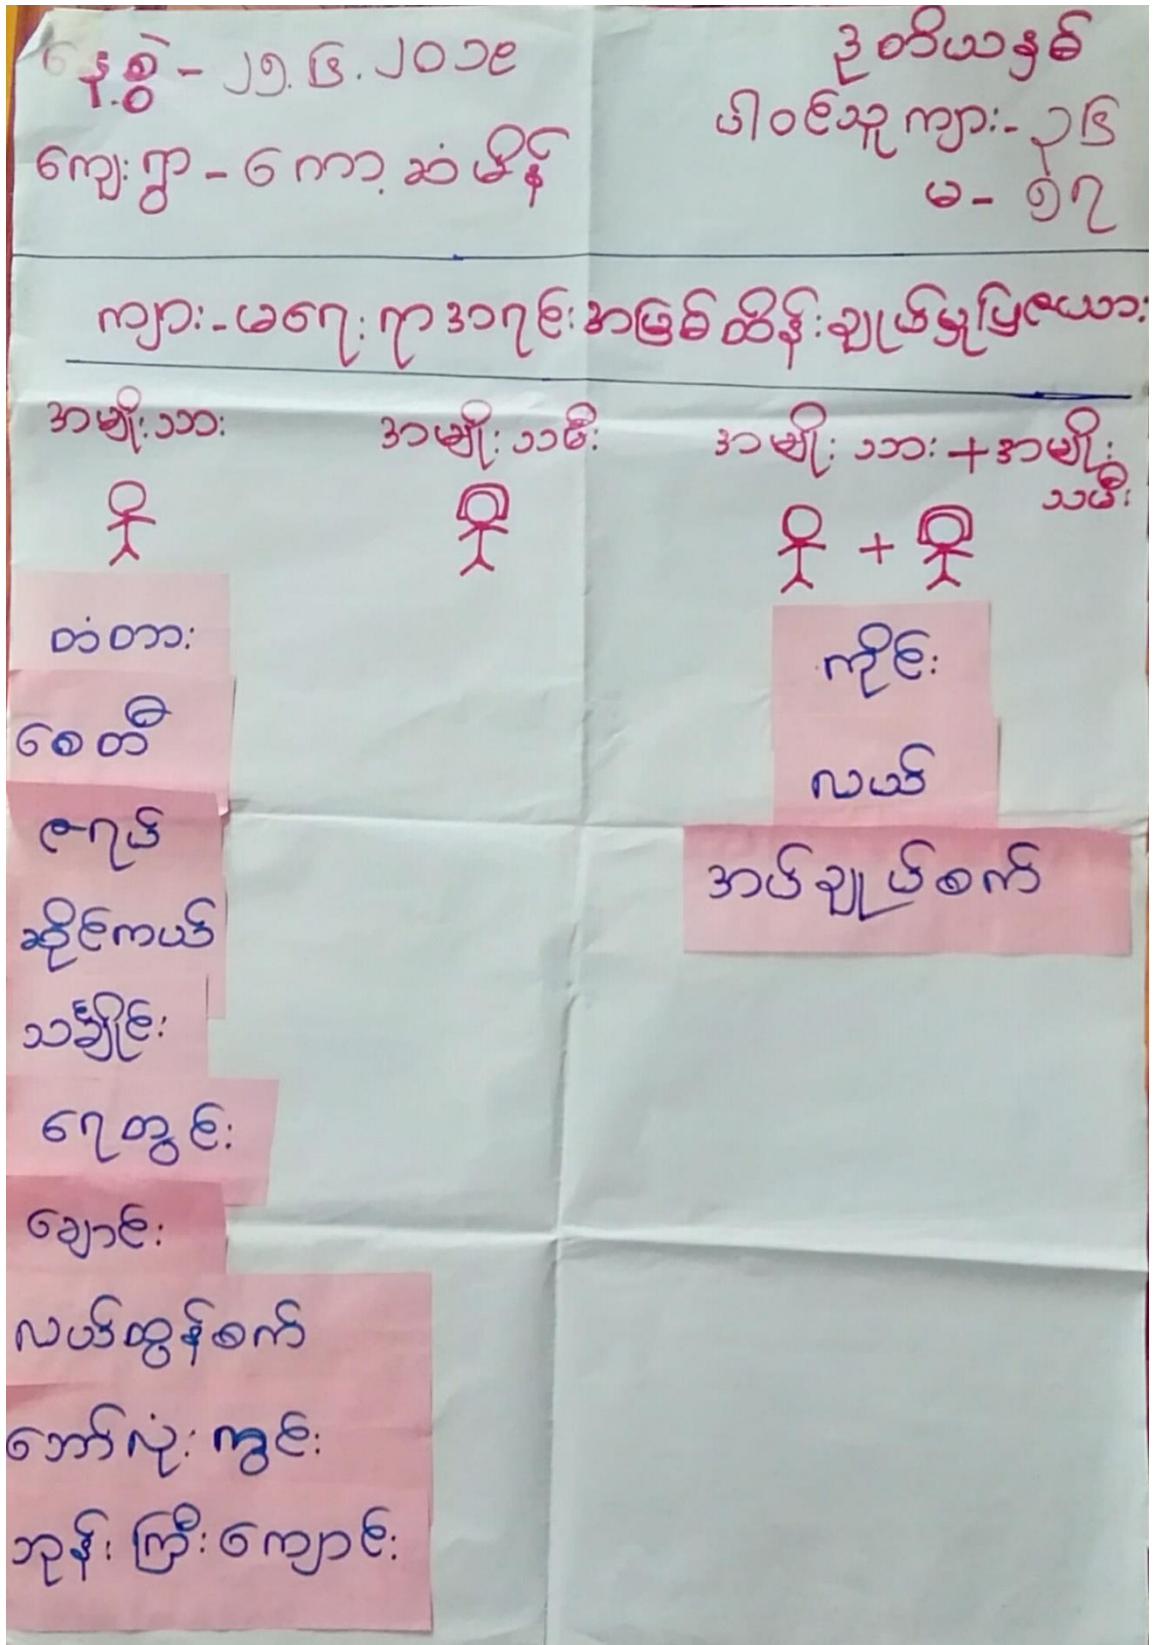 နေ့စွဲ - ၂၅.၆.၂၀၁၉
ဒုတိယနှစ်
ကျေးရွာ - ကော့ဆံမိန်
ပါဝင်သူ ကျား - ၃၆
မ - ၁၇
ကျား - မရေးရာအရင်းအမြစ်ထိန်းချုပ်မှုပြဇယား
အမျိုးသား
အမျိုးသမီး
အမျိုးသား + အမျိုး
သမီး
+
တံတား
စေတီ
ဇရပ်
ဆိုင်ကယ်
သင်္ချိုင်း
ရေတွင်း
ချောင်း
လယ်ထွန်စက်
ဘော်လုံးကွင်း
ဘုန်းကြီးကျောင်း
ကိုင်း
လယ်
အပ်ချုပ်စက်